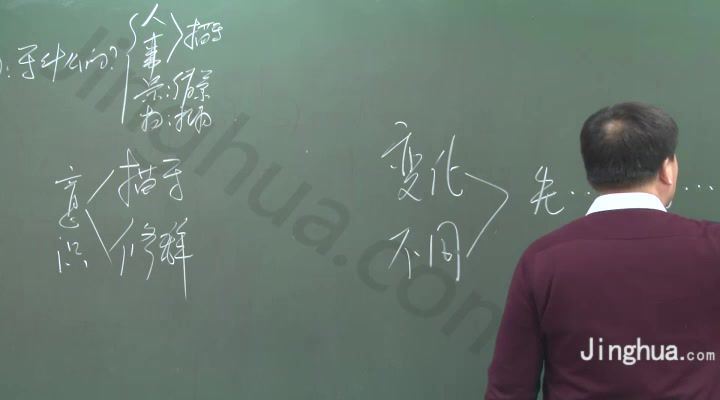 写什么的?
人
事
描写
景:借景
物:托物
意识
描写
修辞
变化
不同
先……
Jinghua.com
Jinghua.com